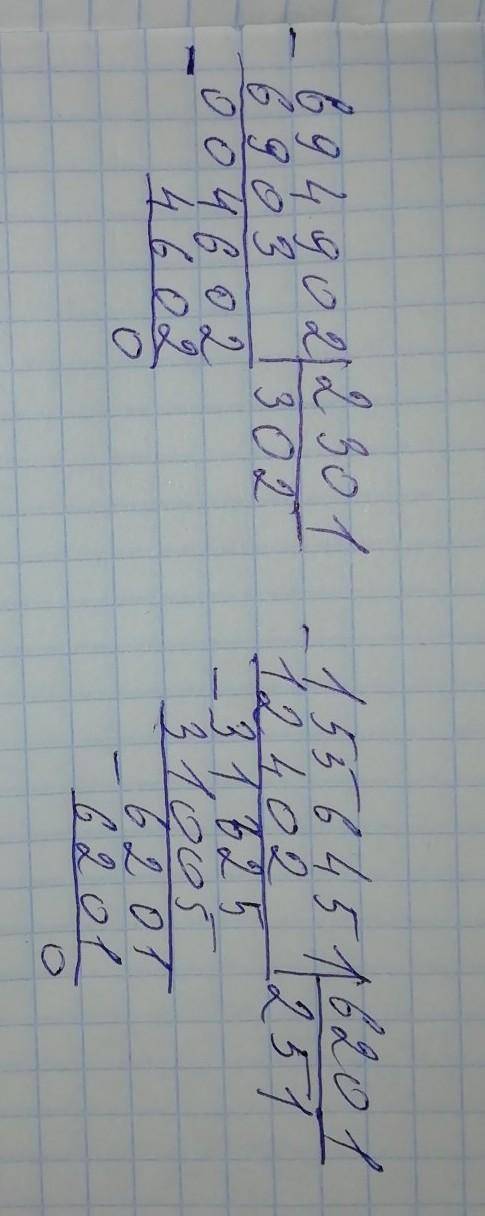 - 694902 | 2301
6903 | 302
- 004602
4602
0
- 1556451 | 6201
12402 | 251
- 31625
31005
- 6201
6201
0